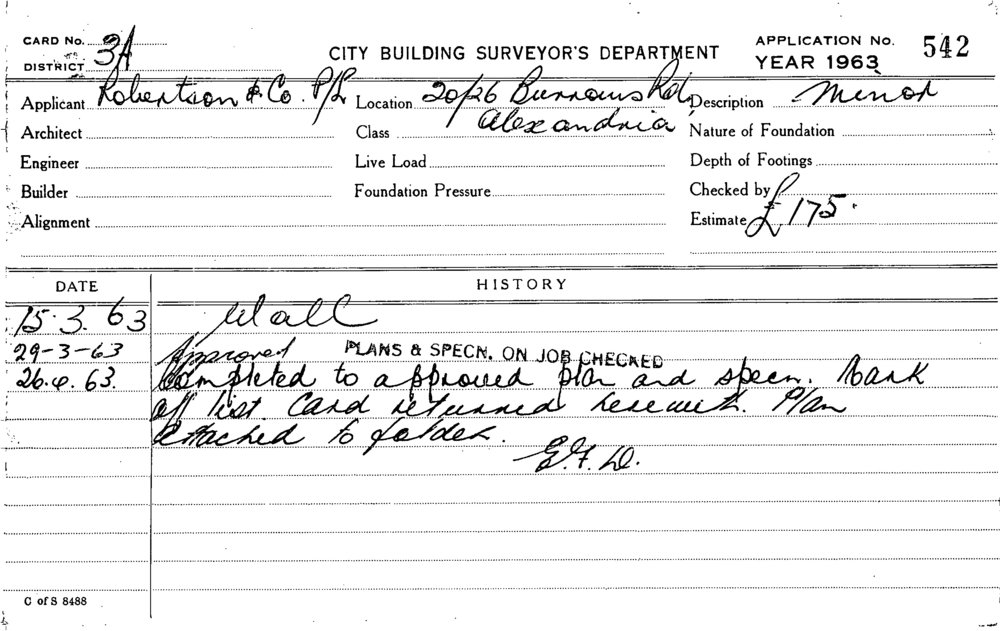 CARD No. 3A
DISTRICT
CITY BUILDING SURVEYOR'S DEPARTMENT
APPLICATION No. 542
YEAR 1963
Applicant Robertson & Co. P/L Location 20/26 Burrows Rd, Description Minor
Architect Class Alexandria Nature of Foundation
Engineer Live Load Depth of Footings
Builder Foundation Pressure Checked by
Alignment Estimate £175.
DATE HISTORY
15.3.63 Wall
29-3-63 Approved PLANS & SPECN. ON JOB CHECKED
26.4.63. Completed to approved plan and specn. Mark
off list. Card returned herewith. Plan
attached to folder.
E.F.D.
C of S 8488